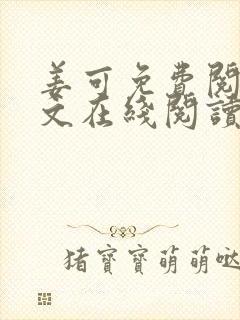 姜可免費閱
文在綫閱讀
猪寶寶萌萌噠